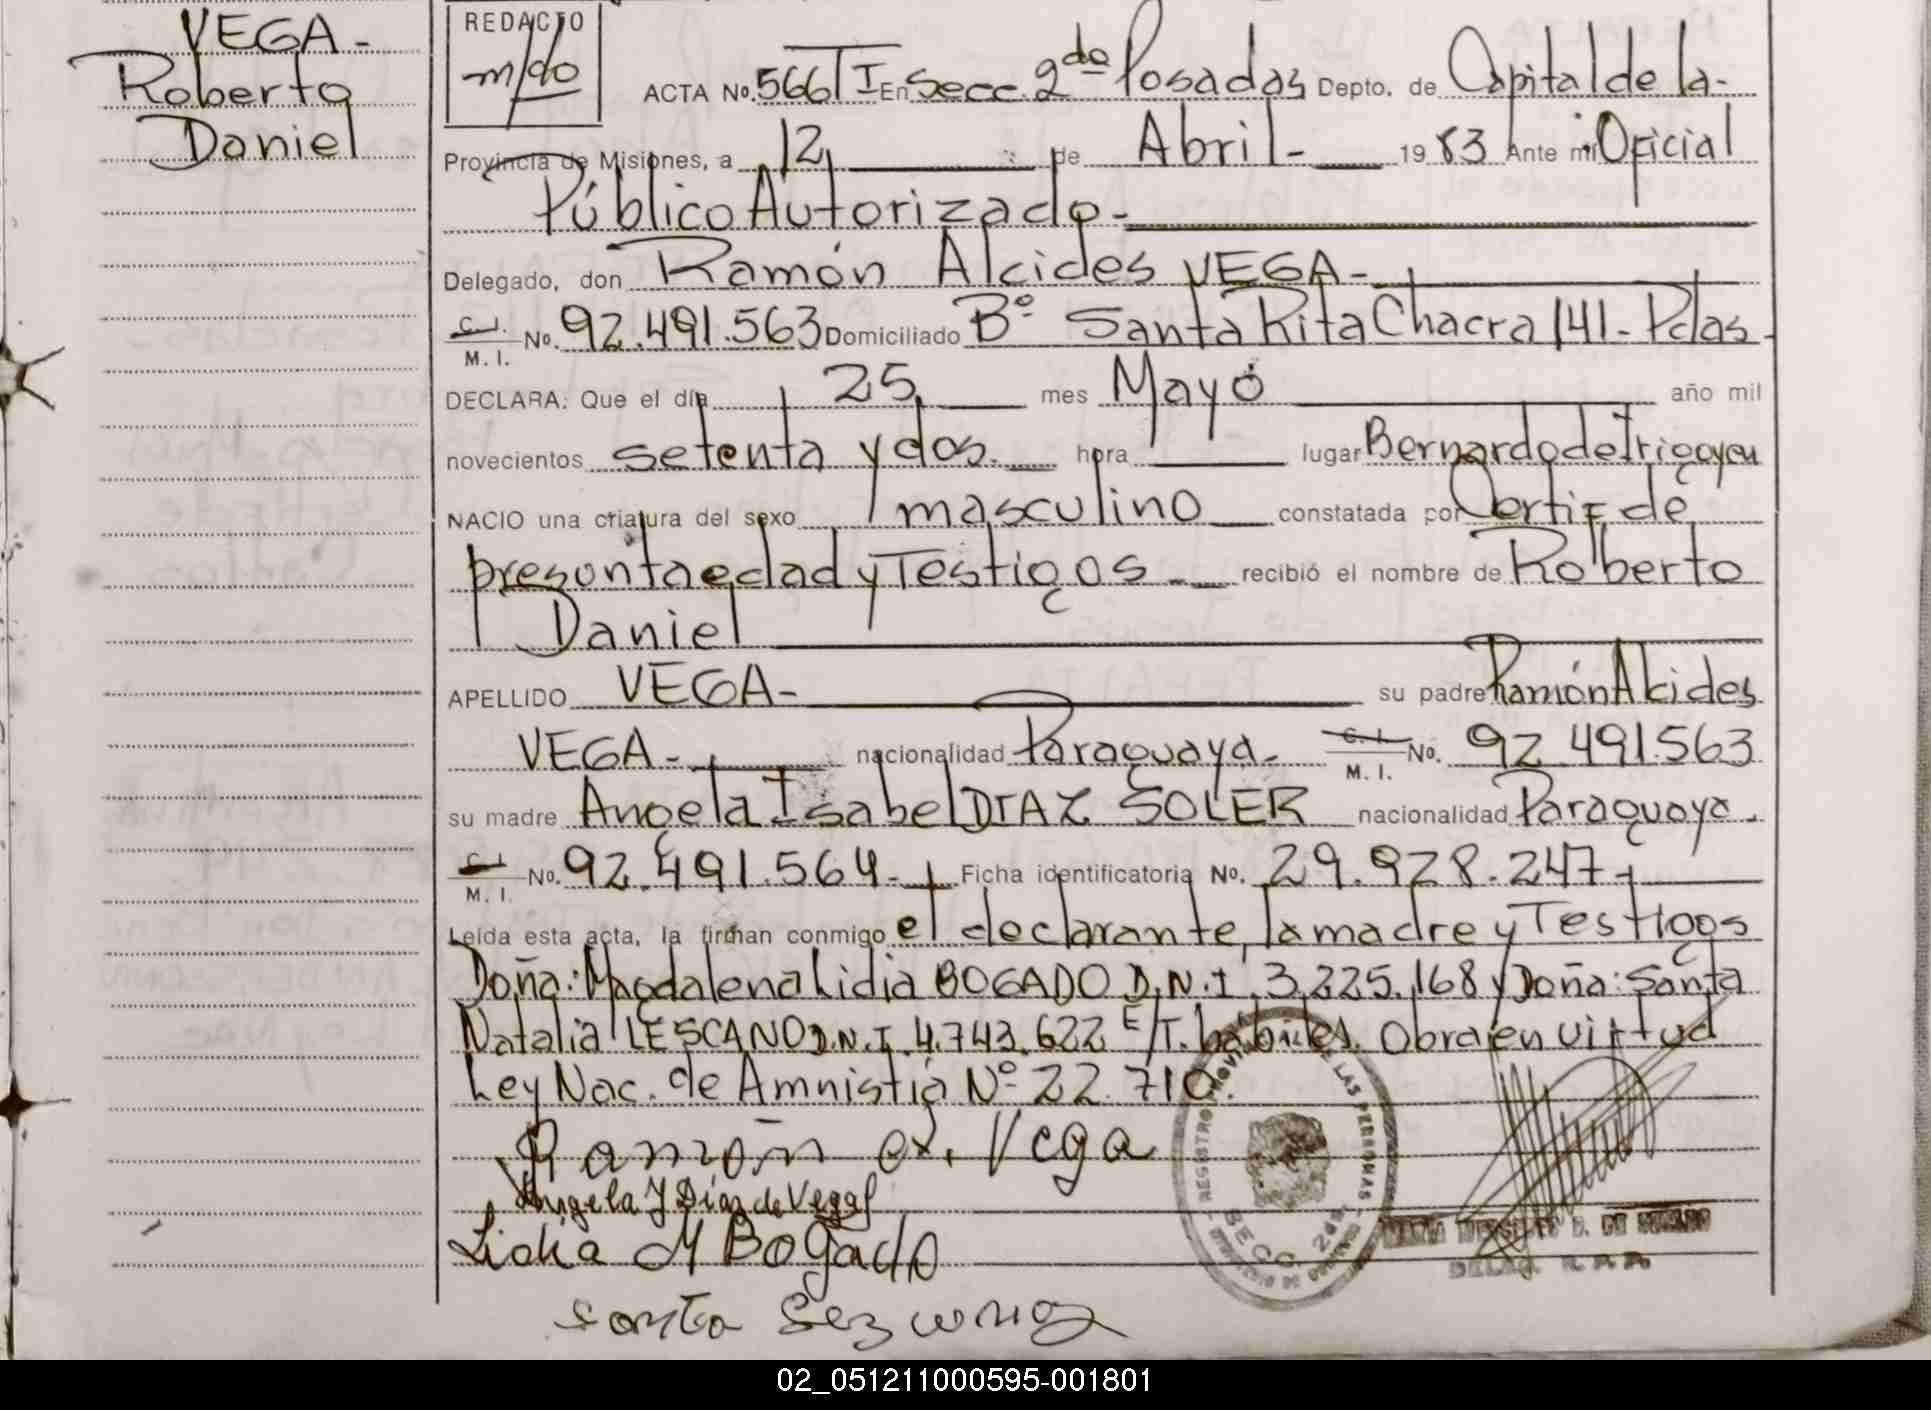 VEGA-
Roberto
Daniel
REDACTO
ACTA No. 566 T I En Secc. 2da Posadas Depto. de Capital de la-
Provincia de Misiones, a 12 de Abril- 19 83 Ante mi Oficial
Público Autorizado-
Delegado, don Ramón Alcides VEGA-
C.I. M. I. No. 92.491.563 Domiciliado Bº Santa Rita Chacra 141- Pdas-
DECLARA: Que el día 25 mes Mayo año mil
novecientos setenta y dos. hora lugar Bernardo de Irigoyen
NACIO una criatura del sexo masculino constatada por Certif. de
presunta edad y Testigos - recibió el nombre de Roberto
Daniel
APELLIDO VEGA- su padre Ramón Alcides
VEGA- nacionalidad Paraguaya- C. I. M. I. No. 92 491.563
su madre Angela Isabel DIAZ SOLER nacionalidad Paraguaya.
C.I. M. I. No. 92.491.564- Ficha identificatoria No. 29.928.247-
Leida esta acta, la firman conmigo el declarante, la madre y Testigos
Doña: Magdalena Lidia BOGADO D.N.I. 3.225.168 y Doña: Santa
Natalia LESCANO D.N.I. 4.743.622 E/T. hábiles. Obra en virtud
Ley Nac. de Amnistia Nº 22.710.
Ramón A. Vega
Angela Y Diaz de Vega
Lidia M Bogado
Santa
REGISTRO PROVINCIAL DE LAS PERSONAS
SECC. 2da.
DELEG. R. P. P.
02_051211000595-001801